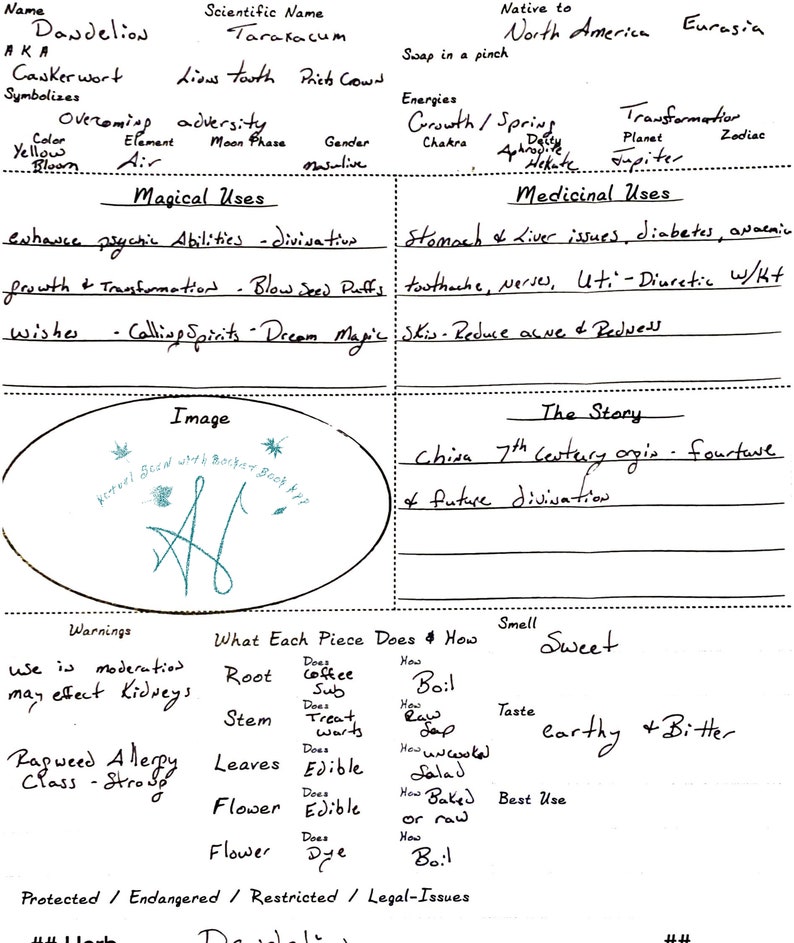 Name Scientific Name Native to
Dandelion Taraxacum North America Eurasia
AKA Swap in a pinch
Cankerwort Lions tooth Priets Crown
Symbolizes Energies
Overcoming adversity Growth / Spring Transformation
Color Element Moon Phase Gender Chakra Deity Planet Zodiac
Yellow Bloom Air Masculine Aphrodite Hekate Jupiter
Magical Uses
enhance psychic Abilities - divination
growth & Transformation - Blow Seed Puffs
wishes - Calling Spirits - Dream Magic
Medicinal Uses
Stomach & Liver issues, diabetes, anaemic
toothache, nerves, Uti - Diuretic w/Kt
Skin - Reduce acne & Redness
Image
Actual Scan with Rocket Book App
The Story
China 7th Century orgin - fourtune
& future divination
Warnings
use in moderation
may effect Kidneys
Ragweed Allergy
Class - Strong
What Each Piece Does & How
Root Does Coffee Sub How Boil
Stem Does Treat warts How Raw Sap
Leaves Does Edible How uncooked Salad
Flower Does Edible How Baked or raw
Flower Does Dye How Boil
Smell
Sweet
Taste
earthy & Bitter
Best Use
Protected / Endangered / Restricted / Legal-Issues
## Herb Dandelion ##